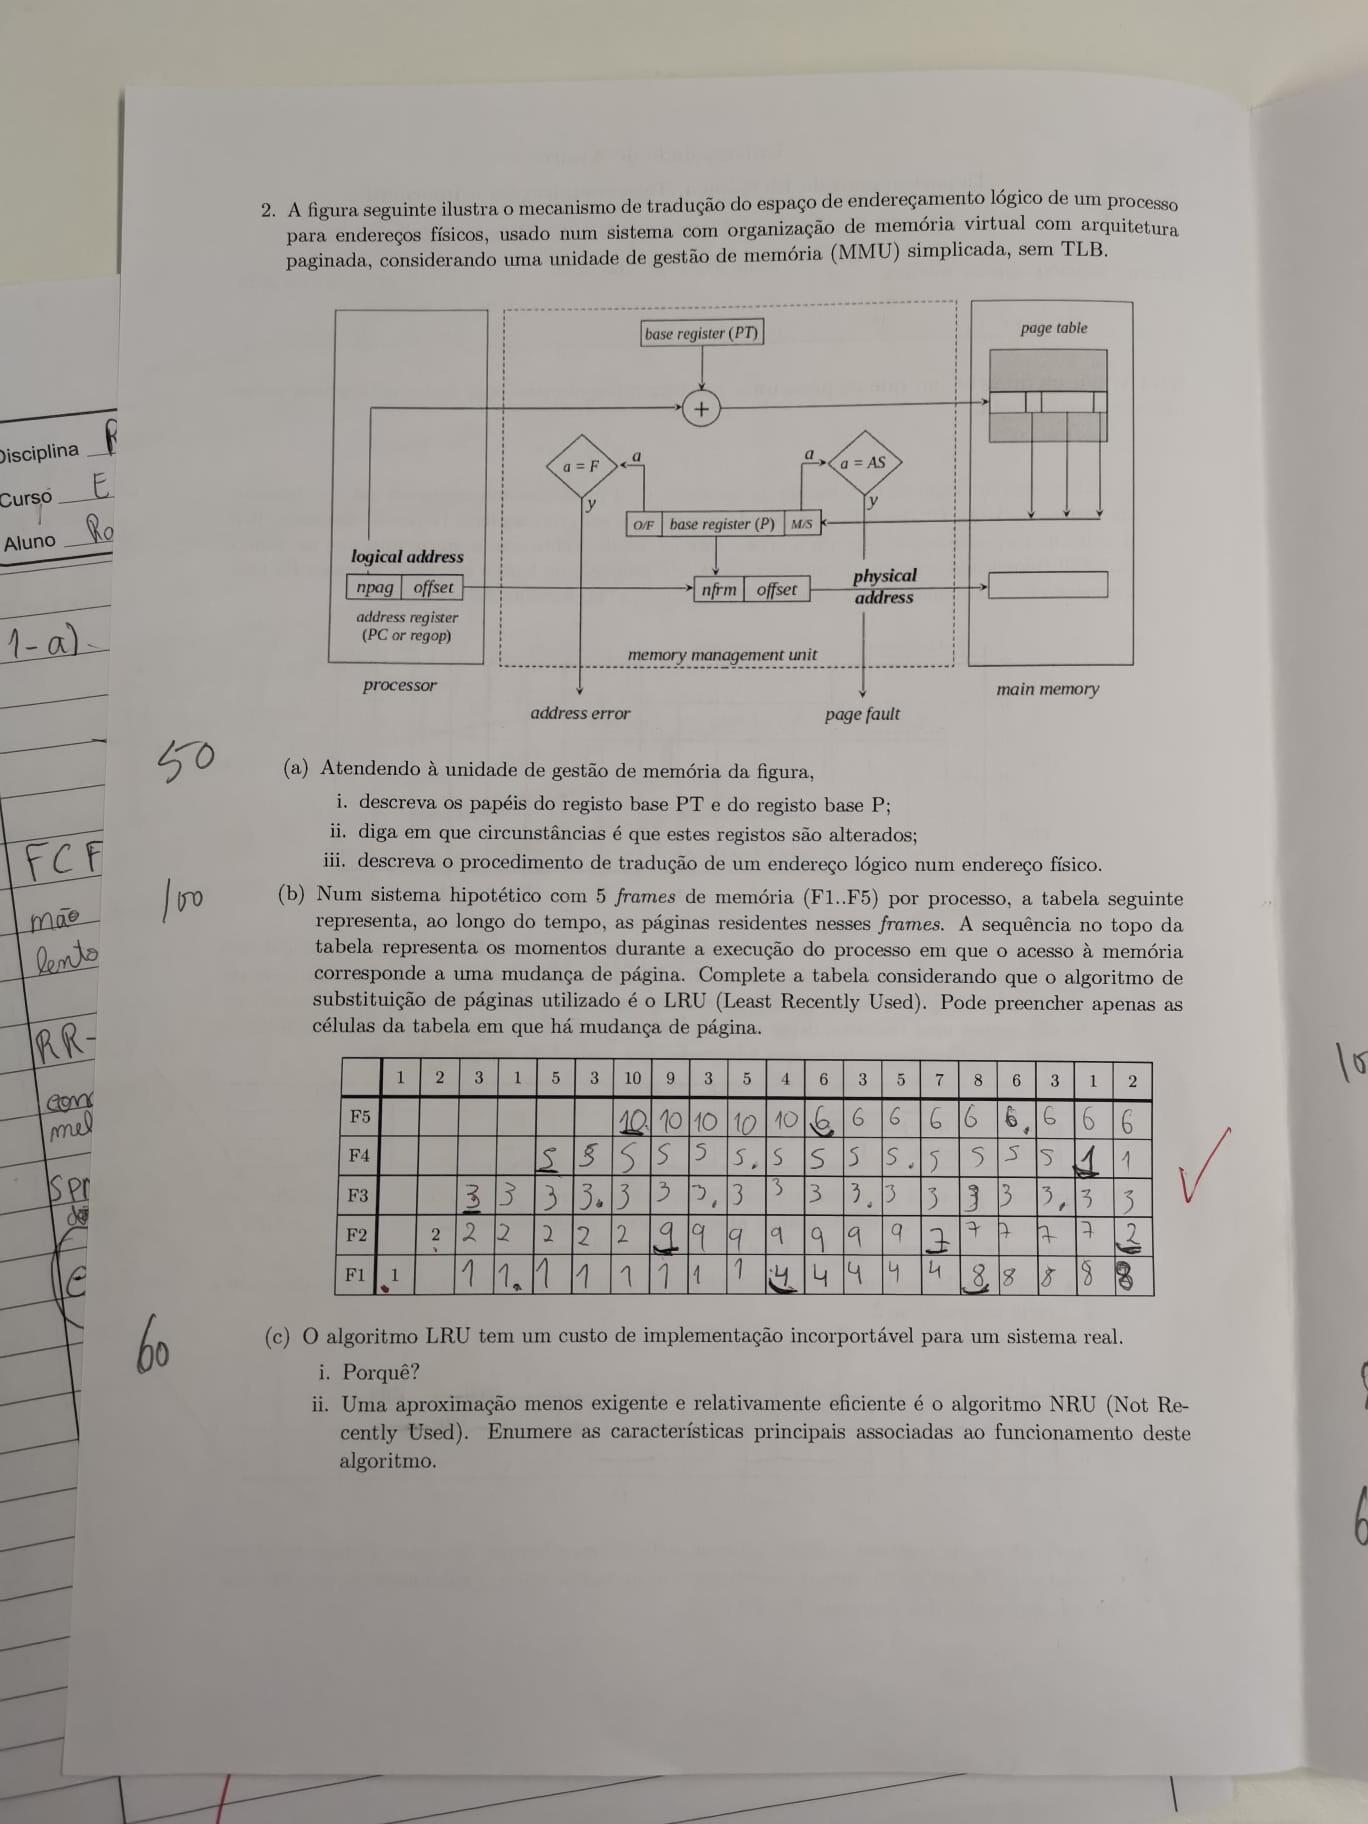 2. A figura seguinte ilustra o mecanismo de tradução do espaço de endereçamento lógico de um processo
para endereços físicos, usado num sistema com organização de memória virtual com arquitetura
paginada, considerando uma unidade de gestão de memória (MMU) simplicada, sem TLB.
base register (PT)
page table
+
a = F
a
a
a = AS
y
y
O/F base register (P) M/S
logical address
npag offset
nfrm offset
physical
address
address register
(PC or regop)
memory management unit
processor
main memory
address error
page fault
Disciplina
Curso E
Aluno Ro
1-a)
FCF
mão
lento
RR-
50
(a) Atendendo à unidade de gestão de memória da figura,
i. descreva os papéis do registo base PT e do registo base P;
ii. diga em que circunstâncias é que estes registos são alterados;
iii. descreva o procedimento de tradução de um endereço lógico num endereço físico.
100
(b) Num sistema hipotético com 5 frames de memória (F1..F5) por processo, a tabela seguinte
representa, ao longo do tempo, as páginas residentes nesses frames. A sequência no topo da
tabela representa os momentos durante a execução do processo em que o acesso à memória
corresponde a uma mudança de página. Complete a tabela considerando que o algoritmo de
substituição de páginas utilizado é o LRU (Least Recently Used). Pode preencher apenas as
células da tabela em que há mudança de página.
1 2 3 1 5 3 10 9 3 5 4 6 3 5 7 8 6 3 1 2
F5 10 10 10 10 10 6 6 6 6 6 6 6 6 6
F4 5 5 5 5 5 5 5 5 5 5 5 5 5 5 1 1
F3 3 3 3 3 3 3 3 3 3 3 3 3 3 3 3 3 3 3
F2 2 2 2 2 2 2 9 9 9 9 9 9 9 7 7 7 7 7 2
F1 1 1 1 1 1 1 1 1 1 4 4 4 4 4 8 8 8 8 8
60
(c) O algoritmo LRU tem um custo de implementação incorportável para um sistema real.
i. Porquê?
ii. Uma aproximação menos exigente e relativamente eficiente é o algoritmo NRU (Not Re-
cently Used). Enumere as características principais associadas ao funcionamento deste
algoritmo.